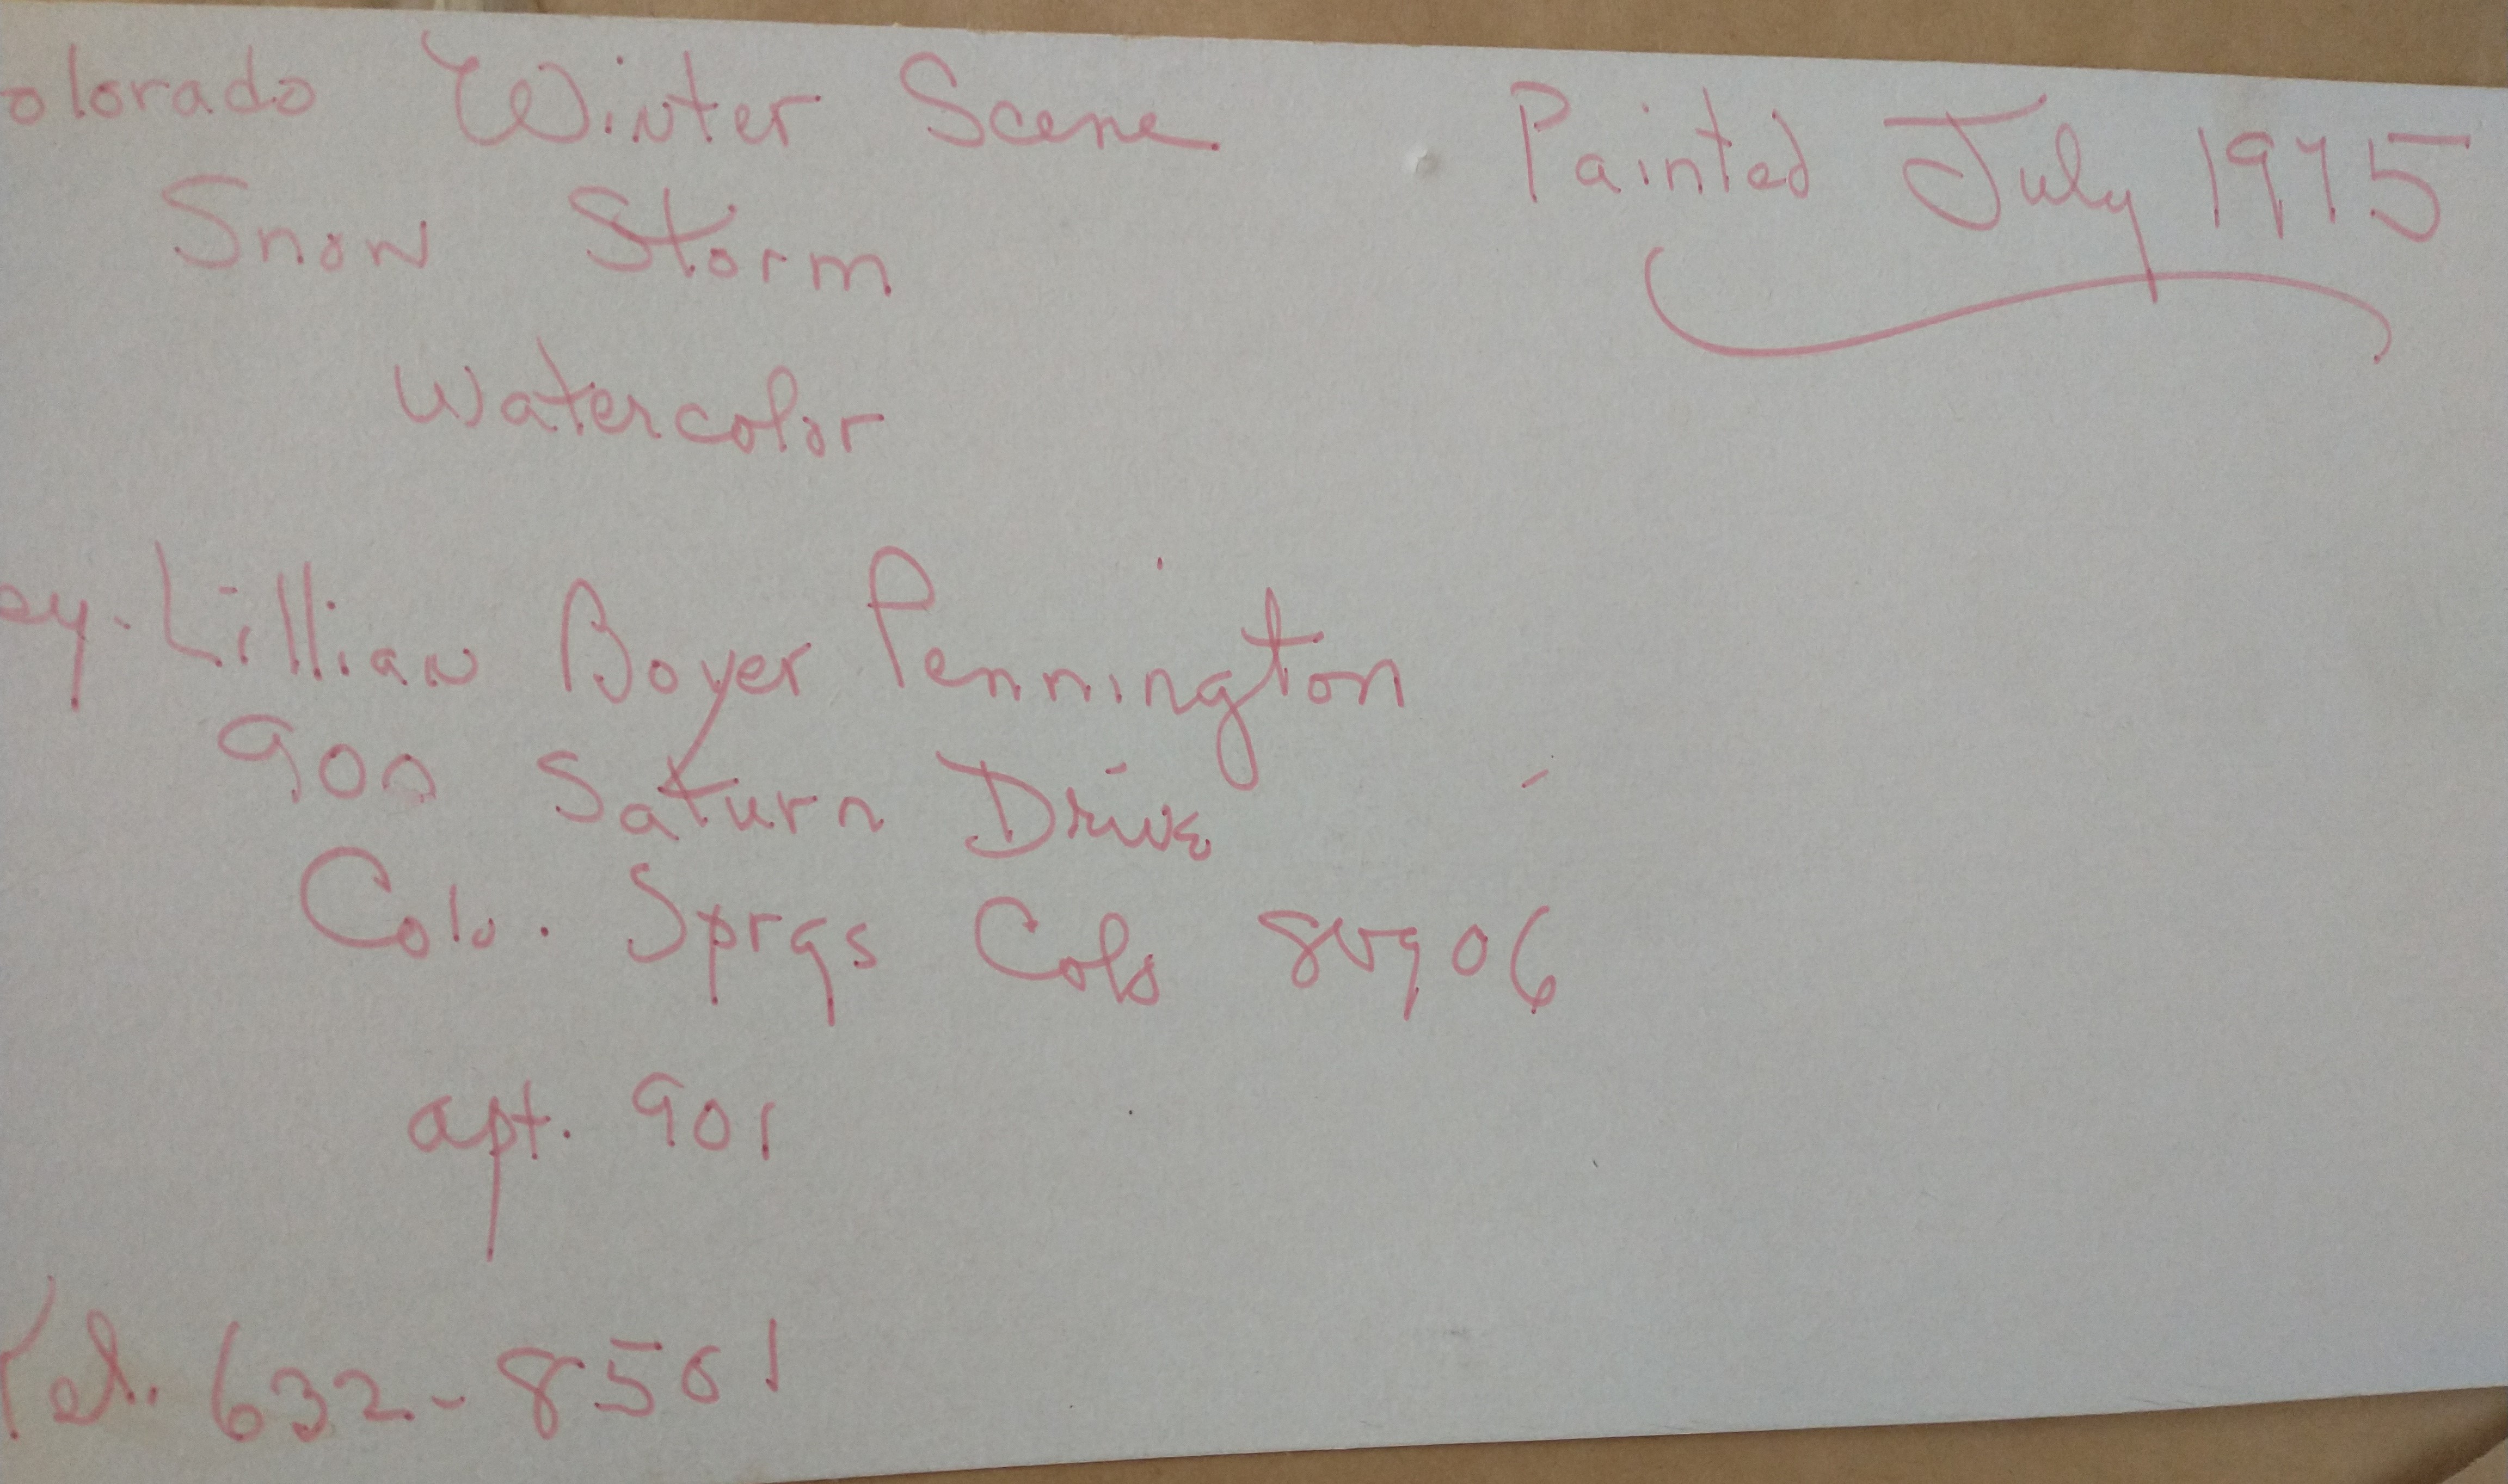 olorado Winter Scene
Painted July 1975
Snow Storm
Watercolor
by. Lillian Boyer Pennington
900 Saturn Drive
Colo. Sprgs Colo 80906
apt. 901
Tel. 632-8501